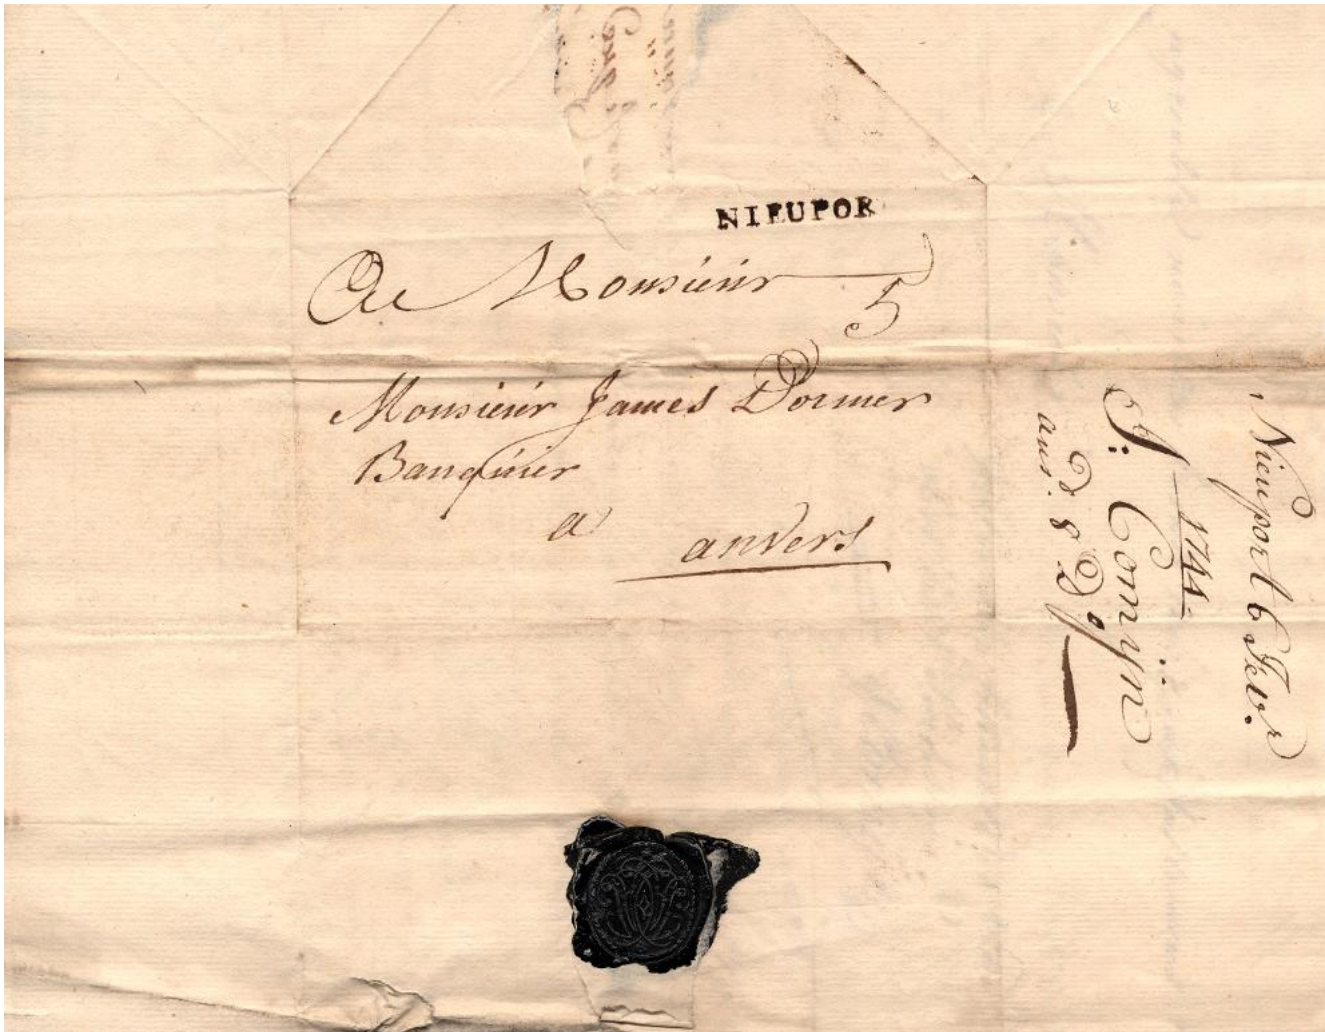 NIEUPOR
A Monsieur
5
Monsieur James Dormer
Banquier
a
anvers
Nieuport 6 Febr.
1744.
J: Comÿn
ans.d 8 Do